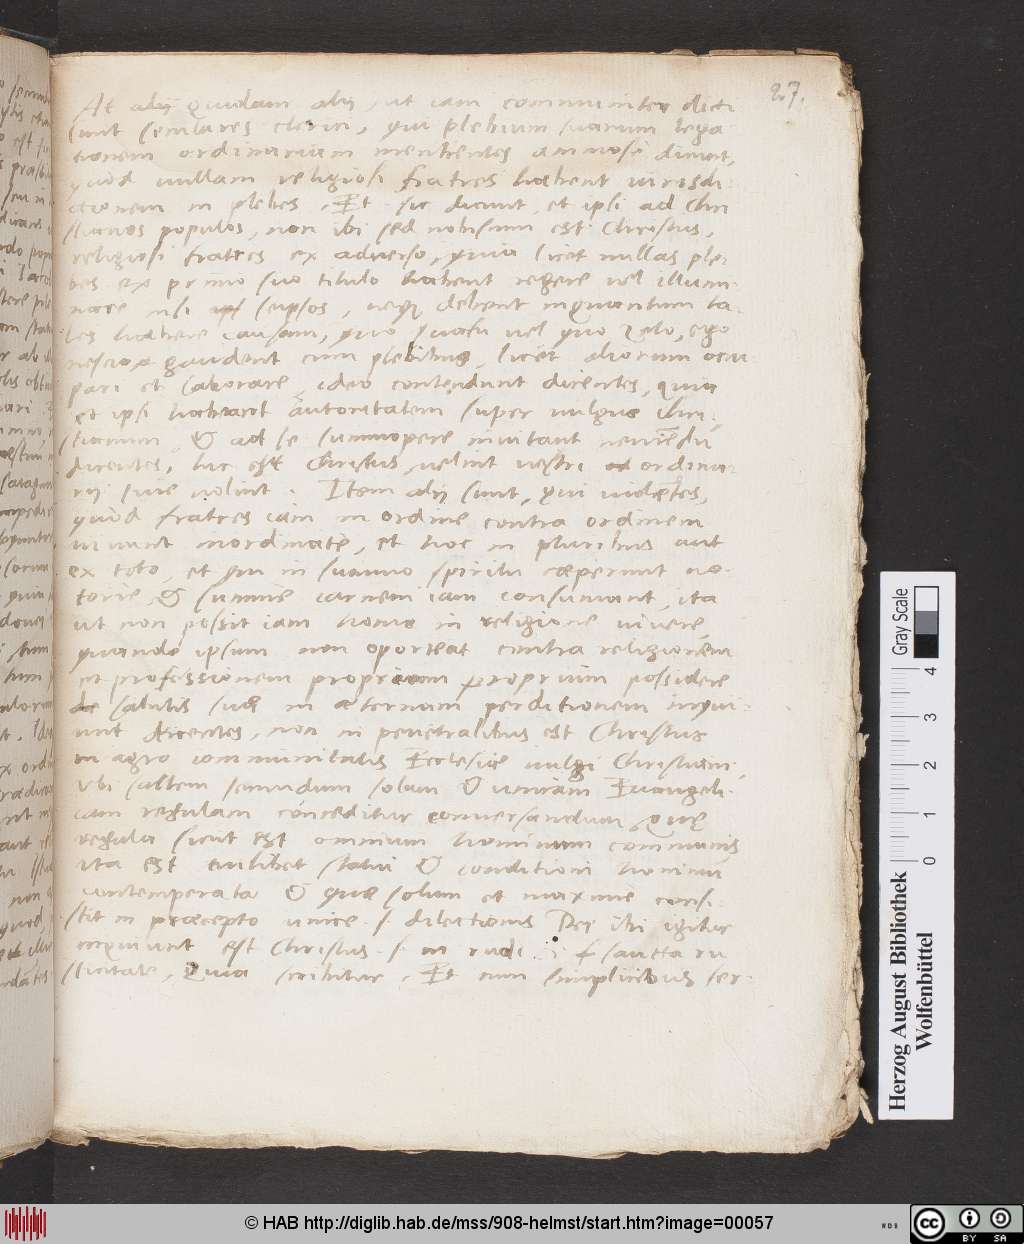 27.
At alij quidam alij, ut iam communiter dicti
sunt seculares clerici, qui plebium suarum lega
tionem ordinariam mentientes animosi dicunt,
quod nullam religiosi fratres habent iurisdi
ctionem in plebes. Et sic dicunt, et ipsi ad Chri
stianos populos, non ibi sed nobiscum est Christus,
religiosi fratres ex adverso, quia licet nullas ple
bes ex primo suo titulo habent regere vel illumi
nare nisi seipsos, neque debent inquantum ta
les habere causam, quo quaesu vel quo zelo, ego
nescio, gaudent cum plebibus, licet aliorum occu
pari et laborare, ideo contendunt dicentes, quia
et ipsi habeant autoritatem super vulgus Chri
stianum & ad se summopere invitant
dicentes, hic est Christus, velint vestri ordina
rij sive nolint. Item alij sunt, qui videntes,
quod fratres iam in ordine contra ordinem
vivunt inordinate, et hoc in pluribus aut
ex toto, et qui in suavuo spiritu coeperunt no
torie, & summe carnem iam consumant, ita
ut non possit iam homo in religione vivere,
quando ipsum non oporteat contra religionem
et professionem propriam proprium possidere
de salutis suae in aeternam perditionem inqui
unt dicentes, non in penetralibus est Christus
in agro communitatis Ecclesiae vulgi Christiani,
ubi saltem secundum solam & unicam Evangeli
cam regulam conceditur conversandum, quae
regula sicut est omnium hominum communis
ita est cuilibet statui & conditioni hominum
contemperata & quae solum et maxime consi
stit in praecepto unice .s. dilectionis Dei ibi igitur
inquiunt est Christus .s. in rudi .i. sancta ru
sticitate, Quia scribitur, Et cum simplicibus ser
Herzog August Bibliothek
Wolfenbüttel
Gray Scale
0 1 2 3 4
© HAB http://diglib.hab.de/mss/908-helmst/start.htm?image=00057
WDB
cc BY SA